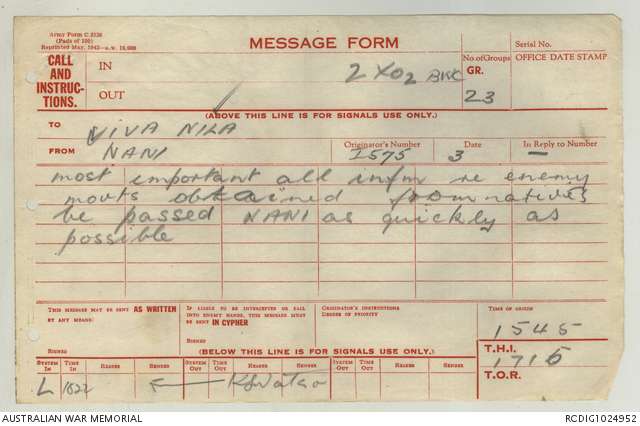 Army Form C.2136
(Pads of 100)
Reprinted May, 1942
MESSAGE FORM
Serial No.
CALL AND INSTRUC-TIONS.
IN
2 X02 BWC
No. of Groups
GR.
23
OFFICE DATE STAMP
OUT
(ABOVE THIS LINE IS FOR SIGNALS USE ONLY.)
TO
VIVA NILA
FROM
NANI
Originator's Number
1575
Date
3
In Reply to Number
—
most important all infm re enemy
movts obtained from natives
be passed NANI as quickly as
possible
THIS MESSAGE MAY BE SENT AS WRITTEN
BY ANY MEANS:
SIGNED
IF LIABLE TO BE INTERCEPTED OR FALL
INTO ENEMY HANDS, THIS MESSAGE MUST
BE SENT IN CYPHER
SIGNED
ORIGINATOR'S INSTRUCTIONS
DEGREE OF PRIORITY
TIME OF ORIGIN
1545
(BELOW THIS LINE IS FOR SIGNALS USE ONLY.)
T.H.I.
1715
T.O.R.
SYSTEM IN
TIME IN
READER
SENDER
SYSTEM OUT
TIME OUT
READER
SENDER
SYSTEM OUT
TIME OUT
READER
SENDER
L 1822
AUSTRALIAN WAR MEMORIAL
RCDIG1024952